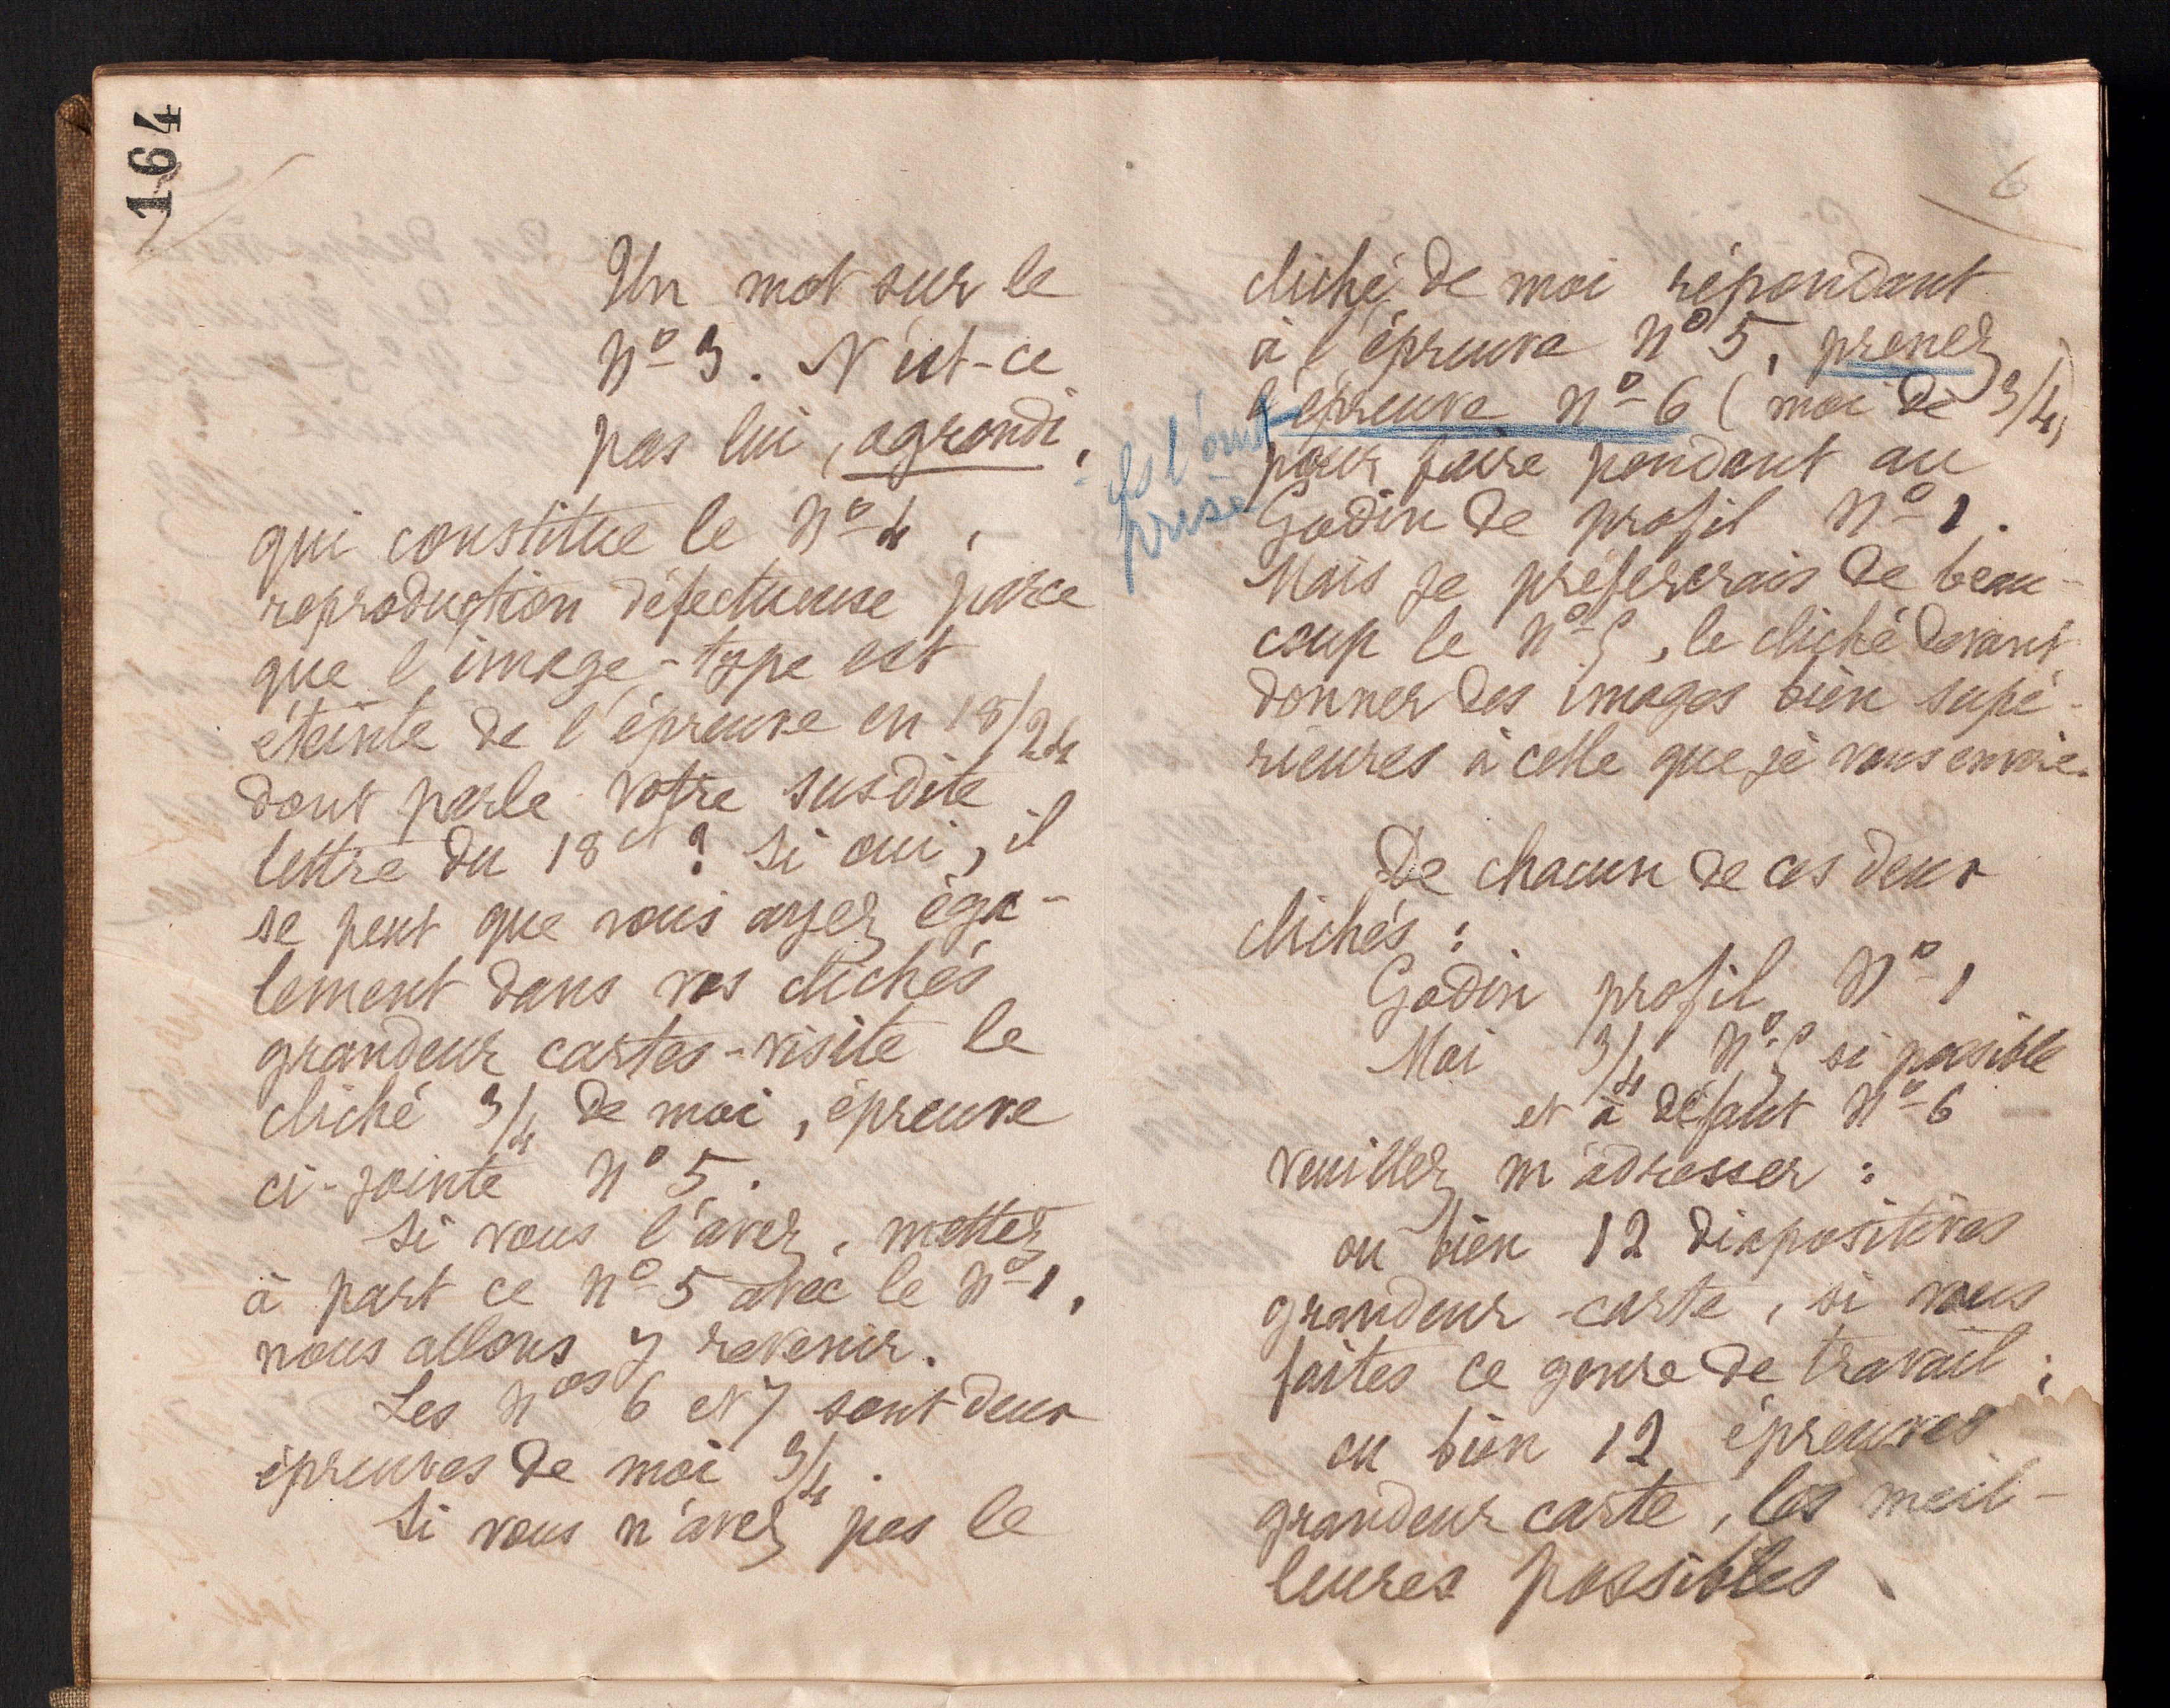 164
Un mot sur le
N° 3. N'est-ce
pas lui, agrandi,
qui constitue le N° 4,
reproduction défectueuse parce
que l'image-type est
éteinte de l'épreuve en 18/24
dont parle votre susdite
lettre du 18 ct ? Si oui, il
se peut que vous ayez éga-
lement dans vos clichés
grandeur cartes-visite le
cliché 3/4 de moi, épreuve
ci-jointe N° 5.
Si vous l'avez, mettez
à part ce N° 5 avec le N° 1,
nous allons y revenir.
Les Nos 6 et 7 sont deux
épreuves de moi 3/4.
Si vous n'avez pas le
6
cliché de moi répondant
à l'épreuve N° 5, prenez
l'épreuve N° 6 (moi de 3/4)
pour faire pendant au
Godin de profil N° 1.
ils l'ont
prise
Mais je préfèrerais de beau-
coup le N° 5, le cliché devant
donner des images bien supé-
rieures à celle que je vous envoie.
De chacun de ces deux
clichés :
Godin profil N° 1
Moi 3/4 N° 5 si possible
et à défaut N° 6
veuillez m'adresser :
ou bien 12 diapositives
grandeur-carte, si vous
faites ce genre de travail ;
ou bien 12 épreuves
grandeur carte, les meil-
leures possibles